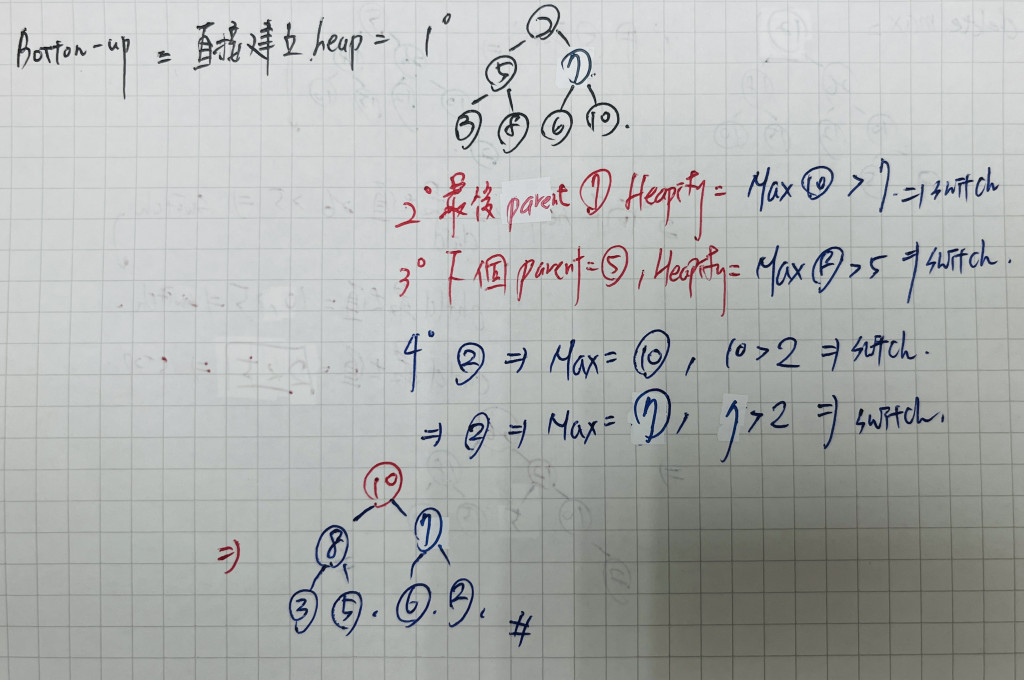 Botton-up = 直接建立 heap = 1°
2
5 7
3 8 6 10.
2° 最後 parent 7 Heapify = Max 10 > 7 ⇒ switch
3° 下個 parent = 5, Heapify = Max 8 > 5 ⇒ switch.
4° 2 ⇒ Max = 10, 10 > 2 ⇒ switch.
⇒ 2 ⇒ Max = 7, 7 > 2 ⇒ switch.
10
⇒ 8 7
3 5. 6. 2. #